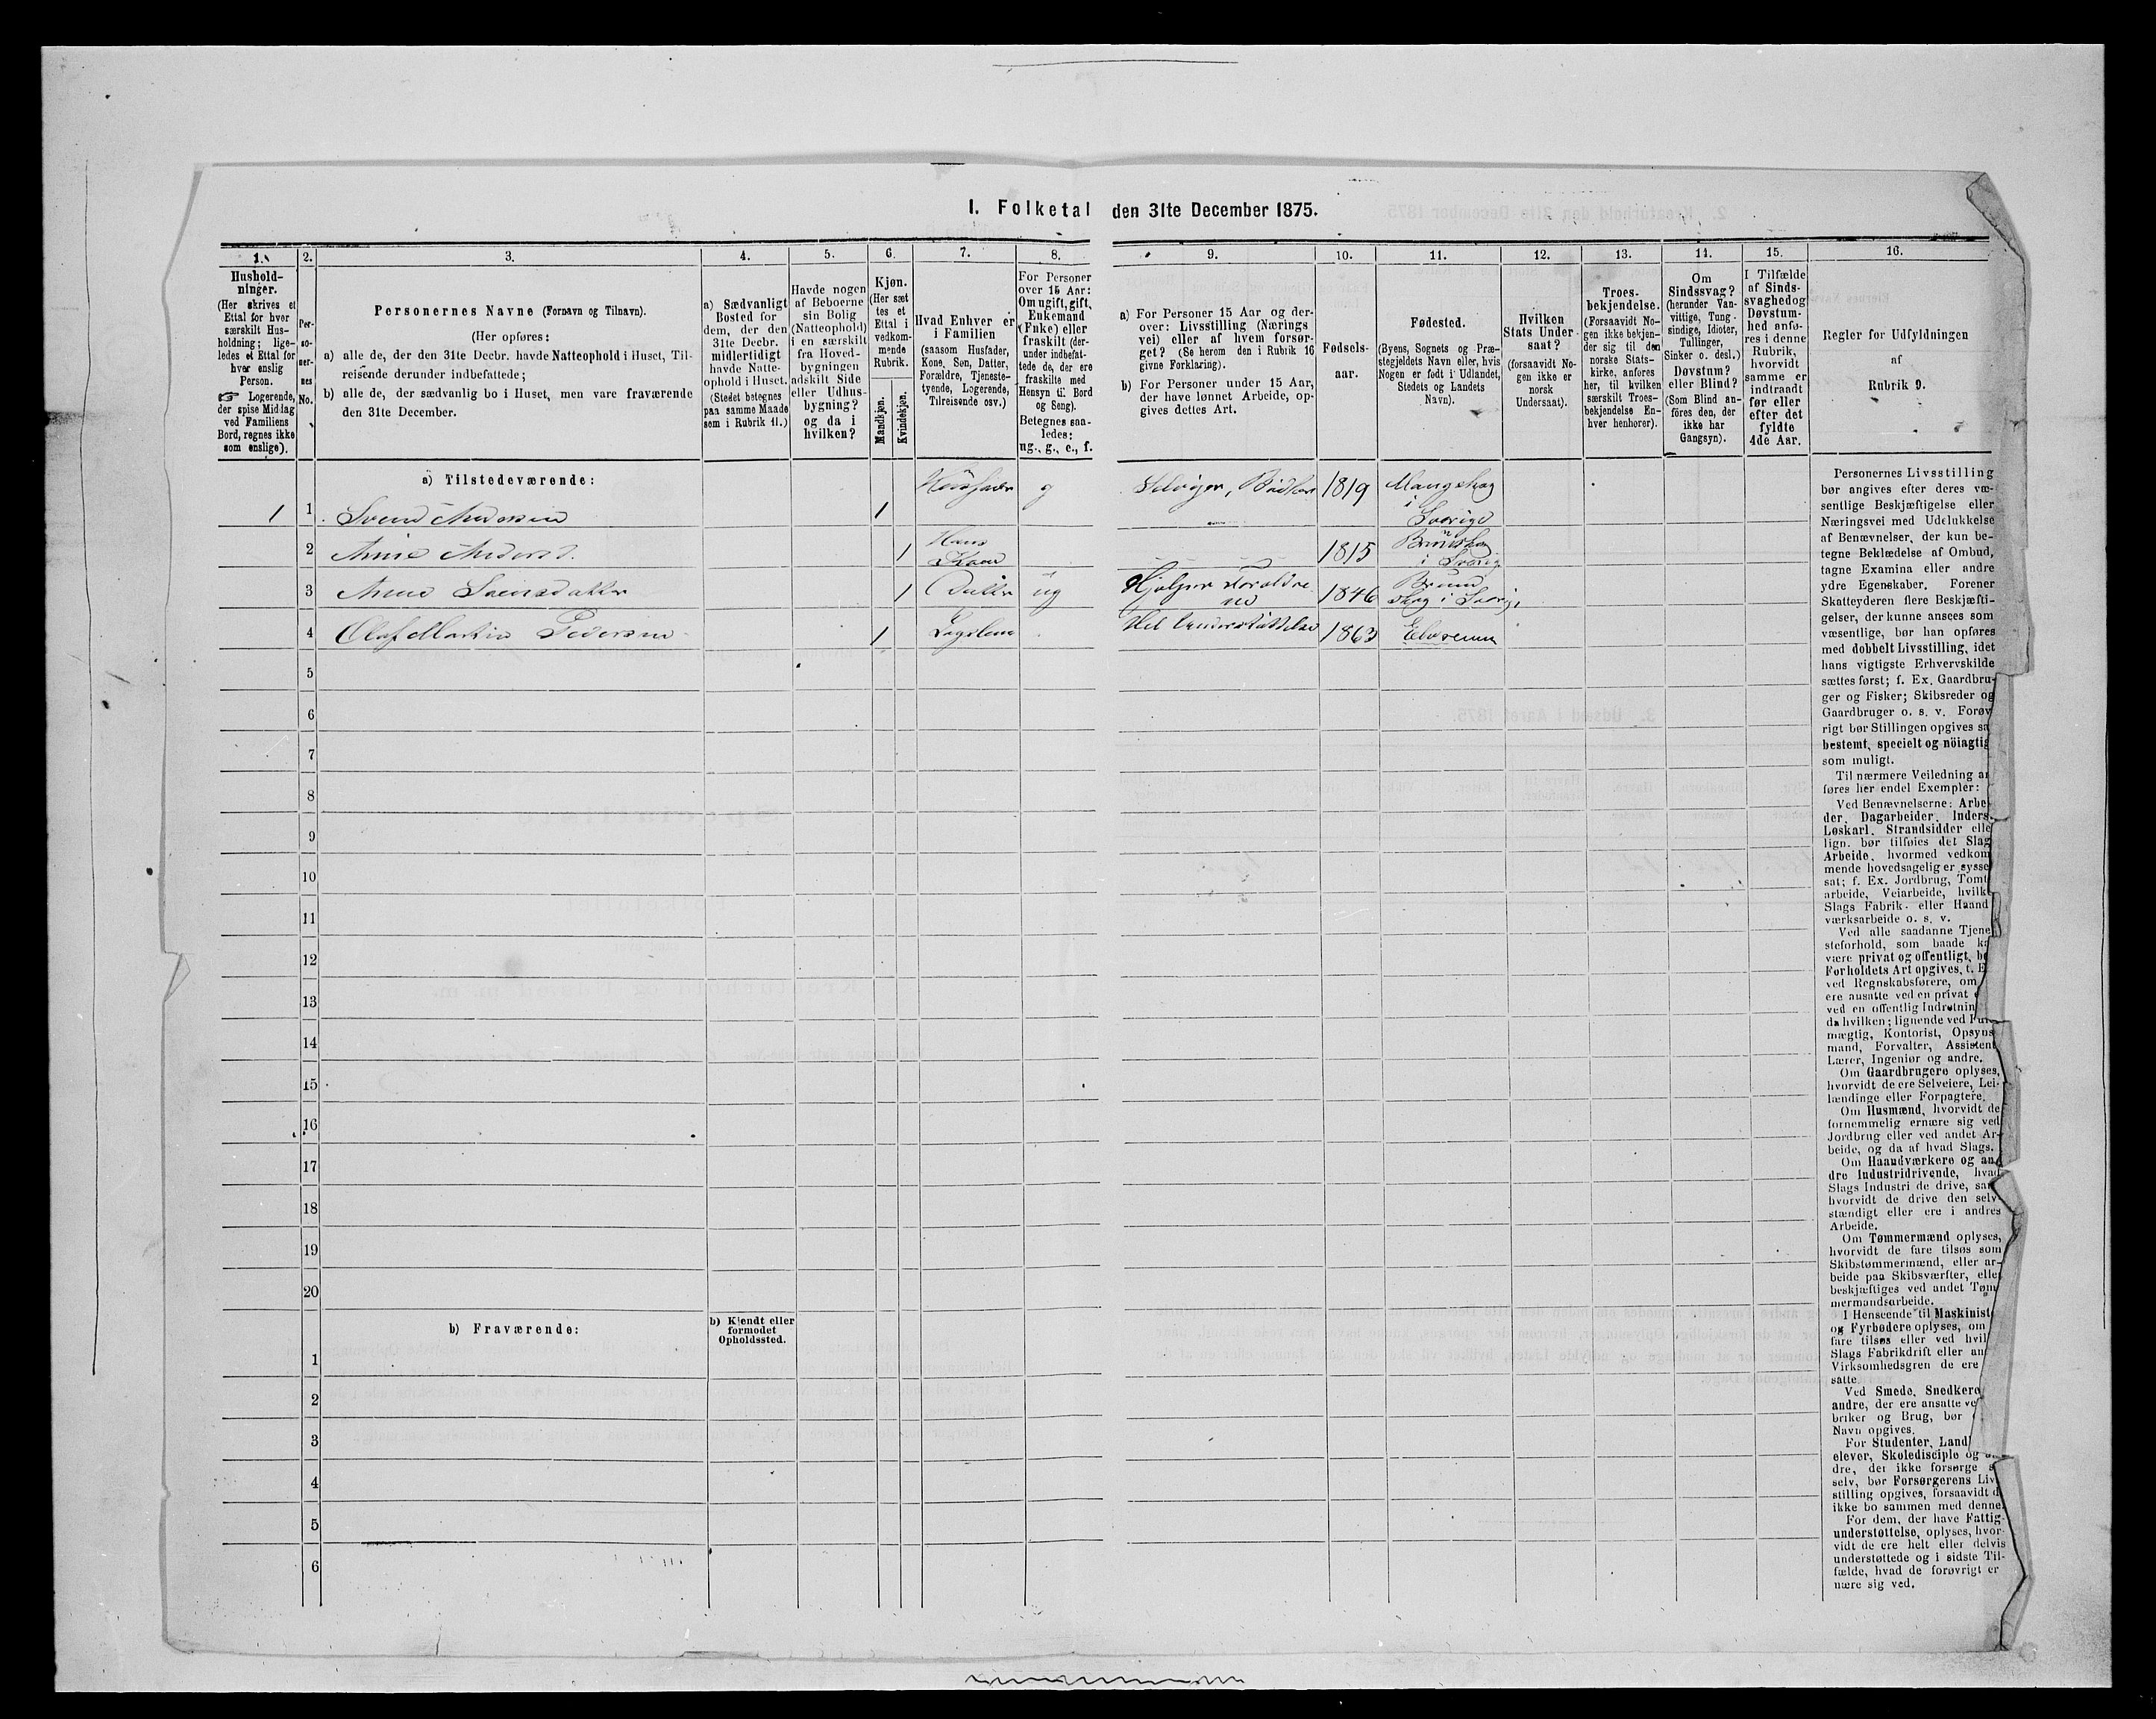 I. Folketal den 31te December 1875.
1.
Hushold-
ninger.
(Her skrives et
Ettal for hver
særskilt Hus-
holdning; lige-
ledes et Ettal for
hver enslig
Person.
☞ Logerende,
der spise Middag
ved Familiens
Bord, regnes ikke
som enslige).
2.
Per-
so-
ner-
nes
No.
3.
Personernes Navne (Fornavn og Tilnavn).
(Her opføres:
a) alle de, der den 31te Decbr. havde Natteophold i Huset, Til-
reisende derunder indbefattede;
b) alle de, der sædvanlig bo i Huset, men vare fraværende
den 31te December.
4.
a) Sædvanligt
Bosted for
dem, der den
31te Decbr.
midlertidigt
havde Natte-
ophold i Huset.
(Stedet betegnes
paa samme Maade
som i Rubrik 11.)
5.
Havde nogen
af Beboerne
sin Bolig
(Natteophold)
i en særskilt
fra Hoved-
bygningen
adskilt Side
eller Udhus-
bygning?
og da i
hvilken?
6.
Kjøn.
(Her sæt
tes et
Ettal i
vedkom-
mende
Rubrik.
Mandkjøn.
Kvindekjøn.
7.
Hvad Enhver er
i Familien
(saasom Husfader,
Kone, Søn, Datter,
Forældre, Tjeneste-
tyende, Logerende,
Tilreisende osv.)
8.
For Personer
over 15 Aar:
Om ugift, gift,
Enkemand
(Enke) eller
fraskilt (der-
under indbefat-
tede de, der ere
fraskilte med
Hensyn til Bord
og Seng).
Betegnes saa-
ledes:
ug., g., e., f.
9.
a) For Personer 15 Aar og der-
over: Livsstilling (Nærings
vei) eller af hvem forsør-
get? (Se herom den i Rubrik 16
givne Forklaring).
b) For Personer under 15 Aar,
der have lønnet Arbeide, op-
gives dettes Art.
10.
Fødsels-
aar.
11.
Fødested.
(Byens, Sognets og Præ-
stegjeldets Navn eller, hvis
Nogen er født i Udlandet,
Stedets og Landets
Navn).
12.
Hvilken
Stats Under-
saat?
(forsaavidt No-
gen ikke er
norsk
Undersaat).
13.
Troes-
bekjendelse.
(Forsaavidt No-
gen ikke bekjen-
der sig til den
norske Stats-
kirke, anføres
her, til hvilken
særskilt Troes-
bekjendelse En-
hver henhører).
14.
Om
Sindssvag?
(herunder Van-
vittige, Tung-
sindige, Idioter,
Tullinger,
Sinker o. desl.)
Døvstum?
eller Blind?
(Som Blind an-
føres den, der
ikke har
Gangsyn).
15.
I Tilfælde
af Sinds-
svaghed og
Døvstum-
hed anfø-
res i denne
Rubrik,
hvorvidt
samme er
indtraadt
før eller
efter det
fyldte
4de Aar.
16.
Regler for Udfyldningen
af
Rubrik 9.
a) Tilstedeværende:
1 1 Svend Andersen 1 Husfader g Selveier, 1819 Mangskog
i
Sverige
2 Anne Andersd. 1 Hans
Kone 1815 Brunskog
i Sverige
3 Anne Svensdatter 1 Datter ug Hjelper Forældre
ne 1846 Brun
skog i Sverige
4 Olaf Martin Pedersen 1 Lægslem Hel Understøttelse 1863 Elverum
5
6
7
8
9
10
11
12
13
14
15
16
17
18
19
20
b) Fraværende:
b) Kjendt eller
formodet
Opholdssted.
1
2
3
4
5
6
Personernes Livsstilling
bør angives efter deres væ-
sentlige Beskjæftigelse eller
Næringsvei med Udelukkelse
af Benævnelser, der kun be-
tegne Beklædelse af Ombud,
tagne Examina eller andre
ydre Egenskaber. Forener
Skatteyderen flere Beskjæfti-
gelser, der kunne ansees som
væsentlige, bør han opføres
med dobbelt Livsstilling, idet
hans vigtigste Erhvervskilde
sættes først; f. Ex. Gaardbru-
ger og Fisker; Skibsreder og
Gaardbruger o. s. v. Forøv
rigt bør Stillingen opgives sa
bestemt, specielt og nöiagtig
som muligt.
Til nærmere Veiledning an
føres her endel Exempler:
Ved Benævnelserne: Arbe-
der, Dagarbeider, Inders.
Løskarl, Strandsidder elle
lign. bør tilføies det Slag
Arbeide, hvormed vedkom
mende hovedsagelig er sysse
sat; f. Ex. Jordbrug, Tomt
arbeide, Veiarbeide, hvilk
Slags Fabrik- eller Haand
værksarbeide o. s. v.
Ved alle saadanne Tjene
steforhold, som baade ka
være privat og offentligt, b
Forholdets Art opgives, f. E
ved Regnskabsførere, om
ere ansatte ved en privat
ved en offentlig Indretnin
da hvilken; lignende ved Ful
mægtig, Kontorist, Opsyns
mand, Forvalter, Assistent
Lærer, Ingeniør og andre.
Om Gaardbrugere oplyses,
hvorvidt de ere Selveiere, Lei-
lændinge eller Forpagtere.
Om Husmænd, hvorvidt de
fornemmelig ernære sig ved
Jordbrug eller ved andet Ar-
beide, og da af hvad Slags.
Om Haandværkere og an
dre Industridrivende, hvad
Slags Industri de drive, sam
hvorvidt de drive den selv-
stændigt eller ere i andres
Arbeide.
Om Tømmermænd oplyses,
hvorvidt de fare tilsøs som
Skibstømmermænd, eller ar-
beide paa Skibsværfter, eller
beskjæftiges ved andet Tøm
mermandsarbeide.
I Henseende til Maskinist
og Fyrbødere oplyses, om
fare tilsøs eller ved hvil
Slags Fabrikdrift eller an
Virksomhedsgren de ere
satte.
Ved Smede, Snedkere
andre, der ere ansatte ve
briker og Brug, bør
Navn opgives.
For Studenter, Land
elever, Skoledisciple og
dre, der ikke forsørge s
selv, bør Forsørgerens Liv
stilling opgives, forsaavidt d
ikke bo sammen med denne.
For dem, der have Fattig-
understøttelse, oplyses, hvor-
vidt de ere helt eller delvis
understøttede og i sidste Til-
fælde, hvad de forøvrigt er
nære sig ved.